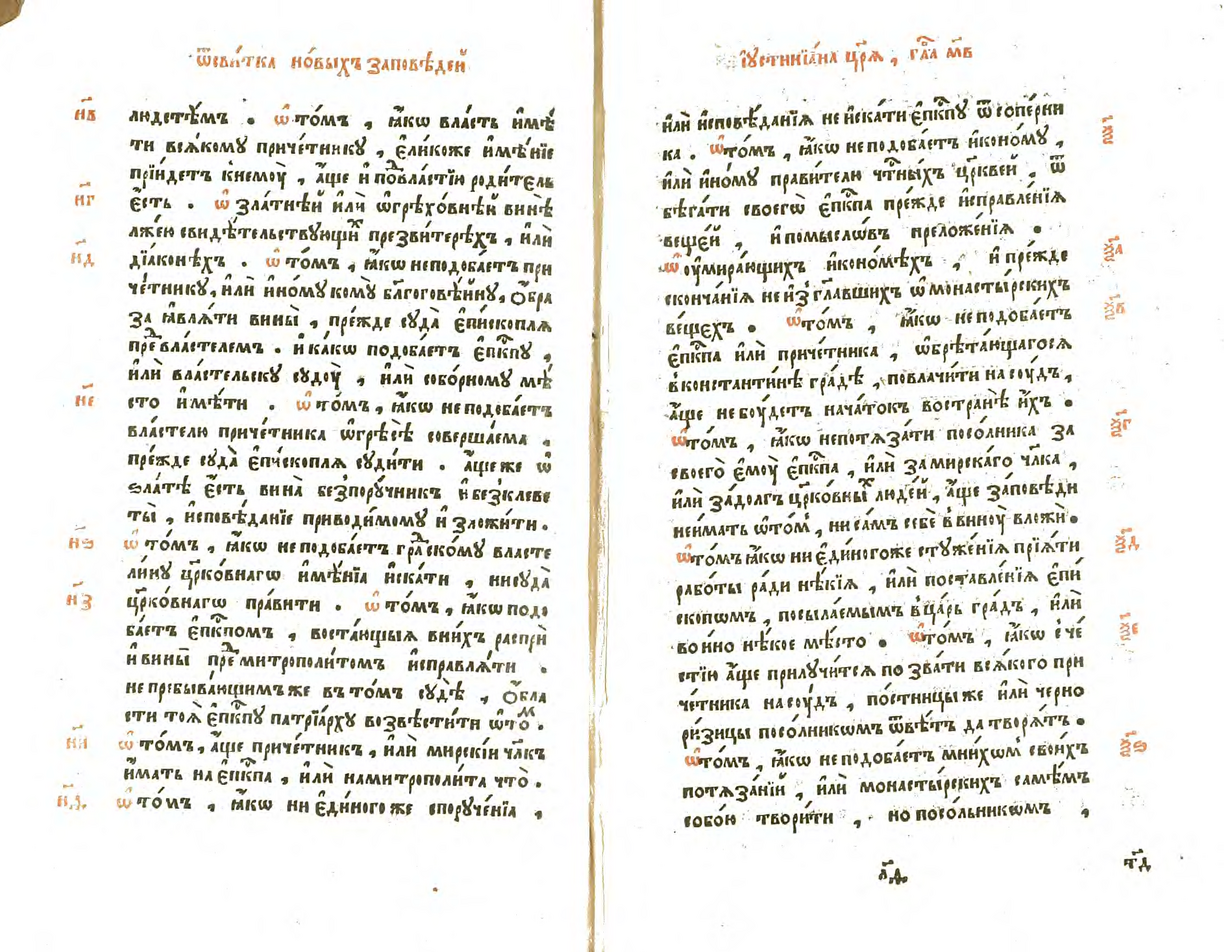 ѿсви́тка но́выхъ заповѣ́дей
н҃в людстѣ́мъ . ѡ҆ то́мъ , ꙗ҆́кѡ вла́сть и҆мѣ́
ти всѧ́кому приче́тнику , є҆ли́коже и҆мѣ́нїе
прїи́детъ кнемоу̀ , а҆́ще и҆ поⷣвла́стїю роди́тель
н҃г є҆́сть . ѡ҆ зла́тнѣй и҆лѝ ѡ҆грѣхо́внѣй винѣ̀
лже́ю свидѣ́тельствующиⷯ презви́терѣхъ , и҆лѝ
н҃д дїа́конѣхъ . ѡ҆ то́мъ , ꙗ҆́кѡ неподоба́етъ при
че́тнику , и҆лѝ и҆но́му кому̀ бл҃гоговѣ́йну , ѻ҆бра
за ꙗ҆влѧ́ти вины̀ , пре́жде суда̀ є҆пи́скоплѧ
преⷣвласте́лемъ . и҆ ка́кѡ подоба́етъ є҆пⷭ҇кпу ,
и҆лѝ вла́стельску судоу̀ , и҆лѝ собо́рному мѣ́
н҃е сто и҆мѣ́ти . ѡ҆ то́мъ , ꙗ҆́кѡ неподоба́етъ
вла́стелю приче́тника ѡ҆грѣсѣ̀ соверша́ема ,
пре́жде суда̀ є҆пи́скоплѧ суди́ти . а҆́ще же ѡ҆
ѕла́тѣ є҆́сть вина̀ безпору́чникъ и҆ безклеве
ты̀ , и҆сповѣ́данїе приводи́мому и҆ зложи́ти .
н҃ѕ ѡ҆ то́мъ , ꙗ҆́кѡ неподоба́етъ граⷣско́му власте
ли́ну цр҃ко́внагѡ и҆мѣ́нїа и҆ска́ти , нисуда̀
н҃з цр҃ко́внагѡ пра́вити . ѡ҆ то́мъ , ꙗ҆́кѡ подо
ба́етъ є҆пⷭ҇кпомъ , воста́ющыѧ вни́хъ ра́спри
и҆ вины̀ преⷣ митрополи́томъ и҆справлѧ́ти .
не пребыва́ющимъ же въ то́мъ судѣ̀ , ѻ҆́бла
сти тоѧ̀ є҆пⷭ҇кпу патрїа́рху возвѣсти́ти ѡ҆ то́ⷨ .
н҃и ѡ҆ то́мъ , а҆́ще приче́тникъ , и҆лѝ мирскі́и чл҃къ
и҆́мать на є҆пⷭ҇кпа , и҆лѝ намитрополи́та что̀ .
н҃ѳ ѡ҆ то́мъ , ꙗ҆́кѡ ни є҆ди́ного же споруче́нїа ,
і҆устинїа́на цр҃ѧ̀ , гл҃а̀ м҃в
и҆лѝ и҆сповѣ́данїѧ не и҆ска́ти є҆пⷭ҇кпу ѿ сопе́рни
ка . ѡ҆ то́мъ , ꙗ҆́кѡ неподоба́етъ и҆коно́му , ѯ҃
и҆лѝ и҆но́му прави́телю чтⷭ҇ны́хъ цр҃кве́й , ѿ
бѣга́ти своегѡ̀ є҆пⷭ҇кпа пре́жде и҆справле́нїѧ
веще́й , и҆ по́мыслѡвъ преложе́нїѧ .
ѡ҆ оу҆мира́ющихъ и҆коно́мѣхъ , и҆ пре́жде ѯ҃а
сконча́нїѧ не и҆з̾гла́вшихъ ѡ҆ монасты́рскихъ
ве́щехъ . ѡ҆ то́мъ , ꙗ҆́кѡ неподоба́етъ ѯ҃в
є҆пⷭ҇кпа и҆лѝ приче́тника , ѡ҆брѣта́ющагосѧ
вконстанти́нѣ гра́дѣ , повлачи́ти на соу́дъ ,
а҆́ще не боу́детъ нача́токъ востранѣ̀ и҆́хъ .
ѡ҆ то́мъ , ꙗ҆́кѡ непотѧза́ти посо́лника за ѯ҃г
своего̀ є҆моу̀ є҆пⷭ҇кпа , и҆лѝ за мирска́го чл҃ка ,
и҆лѝ за́ долгъ цр҃ко́вныⷯ люде́й , а҆́ще за́повѣди
неи́мать ѡ҆ то́мⸯ , ни са́мъ себѐ в виноу̀ вложѝ .
ѡ҆ то́мъ ꙗ҆́кѡ ни є҆ди́ногоже стуже́нїѧ прїѧ́ти ѯ҃д
рабо́ты ра́ди нѣ́кїѧ , и҆лѝ поставле́нїѧ є҆пи́
скопѡмъ , посыла́емымъ в ца́рь гра́дъ , и҆лѝ
во и҆но нѣ́кое мѣ́сто . ѡ҆ то́мъ , ꙗ҆́кѡ с че́ ѯ҃е
стїю а҆́ще прилучи́тсѧ позва́ти всѧ́кого при
че́тника на соу́дъ , по́стницы же и҆лѝ черно
ри́зицы посо́лникѡмъ ѿвѣ́тъ да творѧ́тъ .
ѡ҆ то́мъ , ꙗ҆́кѡ не подоба́етъ мни́хѡмⸯ свои́хъ ѯ҃ѕ
потѧза́нїй , и҆лѝ монасты́рскихъ самѣ́мъ
собо́ю твори́ти , но посо́льникѡмъ ,
л҃д
т҃д